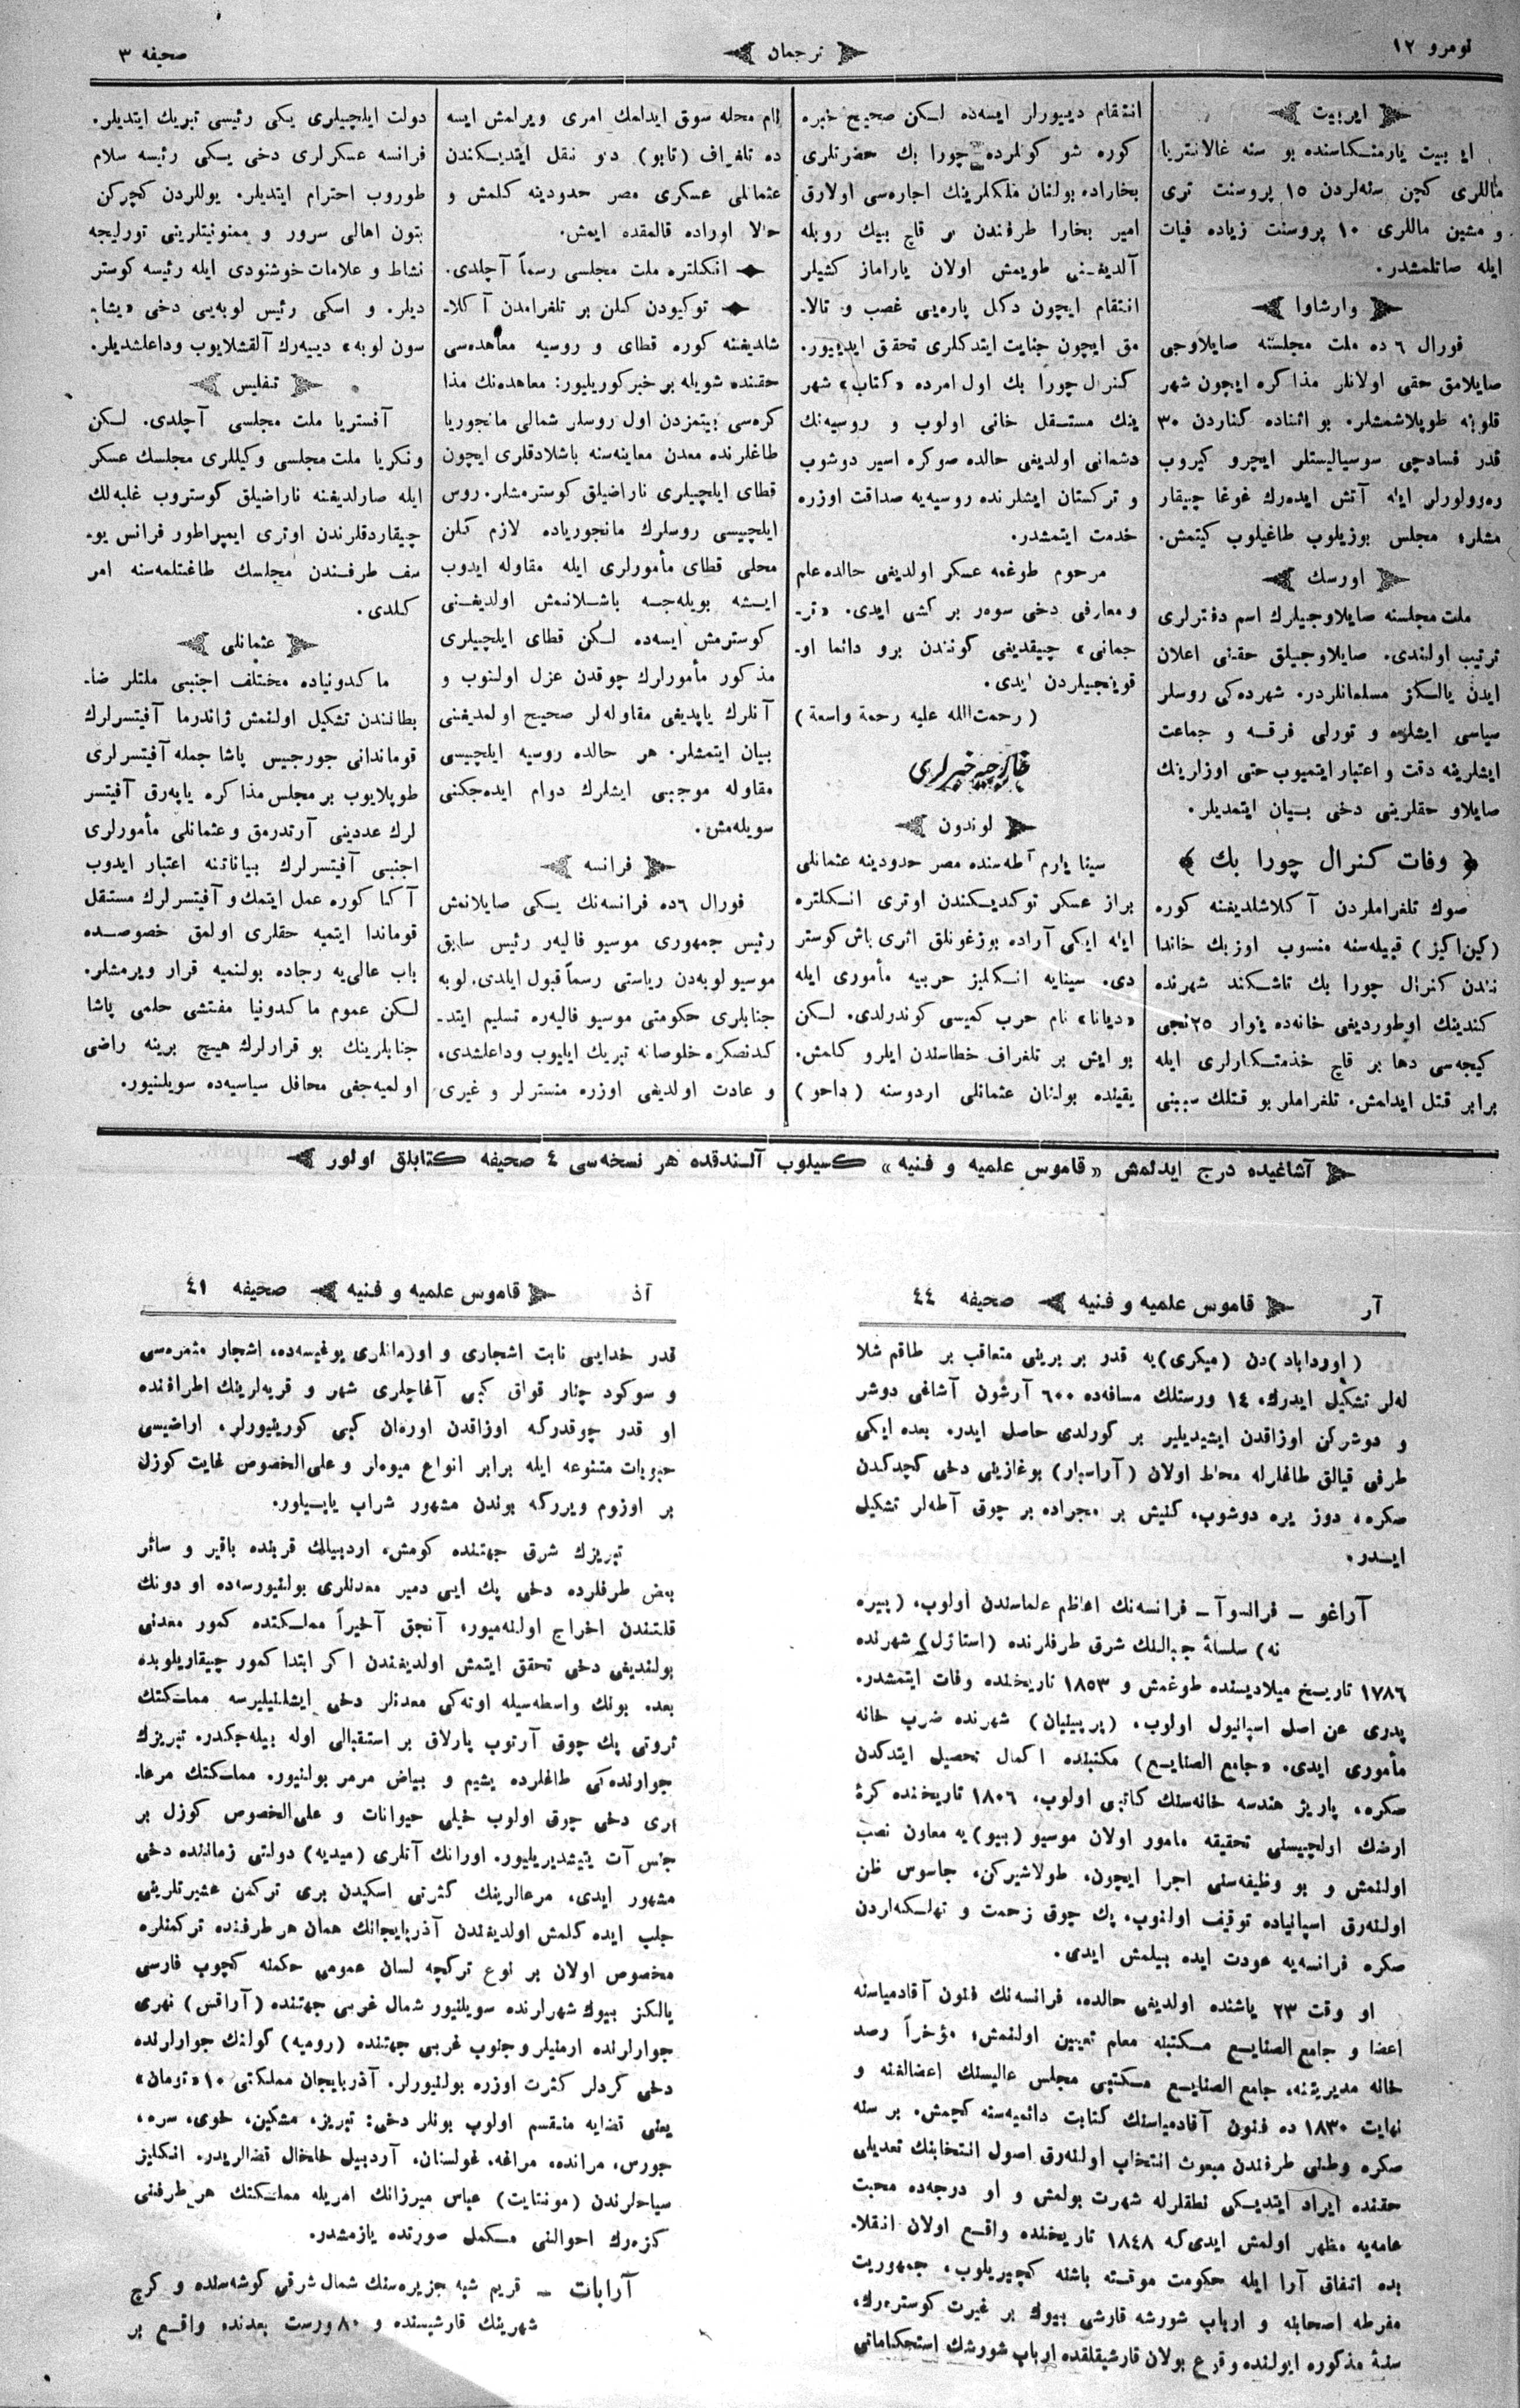 نومرو ١٢
ترجمان
صحیفه ٣
ایربیت
ایربیت یارمنکاسنده بو سنه غالانتریا
ماللری کچن سنه‌لردن ١٥ پروسنت تری
و مشین ماللری ١٠ پروسنت زیاده فیات
ایله صاتلمشدر.
وارشاوا
فورال ٦ ده ملت مجلسنه صایلاوجی
صایلامق حقی اولانلر مذاکره ایچون شهر
قلوبنه طوپلاشمشلر. بو اثناده کناردن ٣٠
قدر فسادچی سوسیالیستلر ایچرو کیروب
ره‌وولورلر ایله آتش ایده‌رك غوغا چیقار
مشلر؛ مجلس بوزیلوب طاغیلوب کیتمش.
اورسك
ملت مجلسنه صایلاوجیلرك اسم دفترلری
ترتیب اولندی. صایلاوجیلق حقنی اعلان
ایدن یالکز مسلمانلردر. شهرده‌کی روسلر
سیاسی ایشلره و تورلی فرقه و جماعت
ایشلرینه دقت و اعتبار ایتمیوب حتی اوزلرینك
صایلاو حقلرینی دخی بیان ایتمدیلر.
﴿ وفات کنرال چورا بك ﴾
صوك تلغراملردن آکلاشلدیغنه کوره
(کین‌اکیز) قبیله‌سنه منسوب اوزبك خاندا
نندن کنرال چورا بك تاشکند شهرنده
کندینك اوطوردیغی خانه‌ده ینوار ٢٥نجی
کیجه‌سی دها بر قاچ خذمتکارلری ایله
برابر قتل ایدلمش. تلغراملر بو قتلك سببنی
انتقام دییورلر ایسه‌ده لکن صحیح خبره
کوره شو کونلرده چورا بك حضرتلری
بخاراده بولنان ملکلرینك اجاره‌سی اولارق
امیر بخارا طرفندن بر قاچ بیك روبله
آلدیغنی طویمش اولان یاراماز کشیلر
انتقام ایچون دکل پاره‌یی غصب و تالا۔
مق ایچون جنایت ایتدکلری تحقق ایدییور.
کنرال چورا بك اول امرده «کتاب» شهر
ینك مستقل خانی اولوب و روسیه‌نك
دشمانی اولدیغی حالده صوکره اسیر دوشوب
و ترکستان ایشلرنده روسیه‌یه صداقت اوزره
خدمت ایتمشدر.
مرحوم طوغمه عسکر اولدیغی حالده علم
و معارفی دخی سوه‌ر بر کشی ایدی. «تر۔
جمانی» چیقدیغی کوندن برو دائما او۔
قویجیلردن ایدی.
(رحمت الله علیه رحمة واسعة)
خارجیه خبرلری
لوندون
سینا یارم آطه‌سنده مصر حدودینه عثمانلی
براز عسکر توکدیکندن اوتری انکلتره
ایله ایکی آراده بوزغونلق اثری باش کوستر
دی. سینایه انکلیز حربیه مأموری ایله
«دیانا» نام حرب کمیسی کوندرلدی. لکن
بو ایش بر تلغراف خطاسندن ایلرو کلمش.
یقینده بولنان عثمانلی اردوسنه (داحو)
نام محله سوق ایدلمك امری ویرلمش ایسه
ده تلغراف (تابو) دیو نقل ایتدیکندن
عثمانلی عسکری مصر حدودینه کلمش و
حالا اوراده قالمقده ایمش.
انکلتره ملت مجلسی رسماً آچلدی.
توکیودن کلن بر تلغرامدن آکلا۔
شلدیغنه کوره قطای و روسیه معاهده‌سی
حقنده شویله بر خبر کوریلیور: معاهده‌نك مذا
کره‌سی بیتمزدن اول روسلر شمالی مانجوریا
طاغلرنده معدن معاینه‌سنه باشلادقلری ایچون
قطای ایلچیلری ناراضیلق کوسترمشلر. روس
ایلچیسی روسلرك مانجوریاده لازم کلن
محلی قطای مأمورلری ایله مقاوله ایدوب
ایشه بویله‌جه باشلانمش اولدیغنی
کوسترمش ایسه‌ده لکن قطای ایلچیلری
مذکور مأمورلرك چوقدن عزل اولنوب و
آنلرك یاپدیغی مقاوله‌لر صحیح اولمدیغنی
بیان ایتمشلر. هر حالده روسیه ایلچیسی
مقاوله موجبی ایشلرك دوام ایده‌جکنی
سویله‌مش.
فرانسه
فورال ٦ده فرانسه‌نك یکی صایلانمش
رئیس جمهوری موسیو فالیه‌ر رئیس سابق
موسیو لوبه‌دن ریاستی رسماً قبول ایلدی. لوبه
جنابلری حکومتی موسیو فالیه‌ره تسلیم ایتد۔
کدنصکره خلوصانه تبریك ایلیوب وداعلشدی.
و عادت اولدیغی اوزره منسترلر و غیری
دولت ایلچیلری یکی رئیسی تبریك ایتدیلر.
فرانسه عسکرلری دخی یکی رئیسه سلام
طوروب احترام ایتدیلر. یوللردن کچرکن
بتون اهالی سرور و ممنونیتلرینی تورلیجه
نشاط و علامات خوشنودی ایله رئیسه کوستر
دیلر. و اسکی رئیس لوبه‌یی دخی «یشا۔
سون لوبه» دییه‌رك آلقشلایوب وداعلشدیلر.
تفلیس
آفستریا ملت مجلسی آچلدی. لکن
ونکریا ملت مجلسی وکیللری مجلسك عسکر
ایله صارلدیغنه ناراضیلق کوستروب غلبه‌لك
چیقاردقلرندن اوتری ایمپراطور فرانس یو۔
سف طرفندن مجلسك طاغتلمه‌سنه امر
کلدی.
عثمانلی
ماکدونیاده مختلف اجنبی ملتلر ضا۔
بطانندن تشکیل اولنمش ژاندرما آفیتسرلرك
قوماندانی جورجیس پاشا جمله آفیتسرلری
طوپلایوب بر مجلس مذاکره یاپه‌رق آفیتسر
لرك عددینی آرتدرمق و عثمانلی مأمورلری
اجنبی آفیتسرلرك بیاناتنه اعتبار ایدوب
آکا کوره عمل ایتمك و آفیتسرلرك مستقل
قوماندا ایتمیه حقلری اولمق خصوصده
باب عالی‌یه رجاده بولنمیه قرار ویرمشلر.
لکن عموم ماکدونیا مفتشی حلمی پاشا
جنابلرینك بو قرارلرك هیچ برینه راضی
اولمیه‌جغی محافل سیاسیه‌ده سویلنیور.
آشاغیده درج ایدلمش «قاموس علمیه و فنیه» کسیلوب آلندقده هر نسخه‌سی ٤ صحیفه کتابلق اولور
آر قاموس علمیه و فنیه صحیفه ٤٤
(اوردآباد)دن (میکری)یه قدر بر برینی متعاقب بر طاقم شلا
له‌لر تشکیل ایدرك، ١٤ ورستلك مسافه‌ده ٦٠٠ آرشون آشاغی دوشر
و دوشرکن اوزاقدن ایشیدیلیر بر کورلدی حاصل ایدر. بعده ایکی
طرفی قیالق طاغلرله محاط اولان (آراسبار) بوغازینی دخی کچدکدن
صکره، دوز یره دوشوب، کنیش بر مجراده بر چوق آطه‌لر تشکیل
ایدر.
آراغو – فرانسوآ – فرانسه‌نك اعاظم علماسندن اولوب، (پیره
نه) سلسلهٔ جبالنك شرق طرفلرنده (استاژل) شهرنده
١٧٨٦ تاریخ میلادیسنده طوغمش و ١٨٥٣ تاریخنده وفات ایتمشدر.
پدری عن اصل اسپانیول اولوب، (پرپینیان) شهرنده ضرب خانه
مأموری ایدی. «جامع الصنایع) مکتبنده اکمال تحصیل ایتدکدن
صکره، پاریز هندسه خانه‌سنك کاتبی اولوب، ١٨٠٦ تاریخنده کرهٔ
ارضك اولچیسنی تحقیقه مامور اولان موسیو (بیو)یه معاون نصب
اولنمش و بو وظیفه‌سنی اجرا ایچون، طولاشیرکن، جاسوس ظن
اولنه‌رق اسپانیاده توقیف اولنوب، پك چوق زحمت و تهلکه‌لردن
صکره فرانسه‌یه عودت ایده بیلمش ایدی.
او وقت ٢٣ یاشنده اولدیغی حالده، فرانسه‌نك فنون آقادمیاسنه
اعضا و جامع الصنایع مکتبنه معلم تعیین اولنمش؛ مؤخراً رصد
خانه مدیریتنه، جامع الصنایع مکتبی مجلس عالیسنك اعضالغنه و
نهایت ١٨٣٠ ده فنون آقادمیاسنك کتابت دائمیه‌سنه کچمش. بر سنه
صکره وطنی طرفندن مبعوث انتخاب اولنه‌رق اصول انتخابنك تعدیلی
حقنده ایراد ایتدیکی نطقلرله شهرت بولمش و او درجه‌ده محبت
عامه‌یه مظهر اولمش ایدی‌که ١٨٤٨ تاریخنده واقع اولان انقلا۔
بده اتفاق آرا ایله حکومت موقته باشنه کچیریلوب، جمهوریت
مفرطه اصحابنه و ارباب شورشه قارشی بیوك بر غیرت کوستره‌رك،
سنهٔ مذکوره ایولنده وقوع بولان قارشیقلقده ارباب شورشك استحکاماتی
آذ قاموس علمیه و فنیه صحیفه ٤١
قدر خدایی نابت اشجاری و اورمانلری یوغیسه‌ده، اشجار مثمره‌سی
و سوکود چنار قواق کبی آغاچلری شهر و قریه‌لرینك اطرافنده
او قدر چوقدرکه اوزاقدن اورمان کبی کورینیورلر. اراضیسی
حبوبات متنوعه ایله برابر انواع میوه‌لر و علی‌الخصوص غایت کوزل
بر اوزوم ویررکه بوندن مشهور شراب یاپیلور.
تبریزك شرق جهتنده کومش، اردبیلك قربنده باقیر و سائر
بعض طرفلرده دخی پك ایی دمیر معدنلری بولنیورسه‌ده اودونك
قلتندن اخراج اولنه‌میور، آنجق آخیراً مملکتده کمور معدنی
بولندیغی دخی تحقق ایتمش اولدیغندن اکر ابتدا کمور چیقاریلوبده
بعده بونك واسطه‌سیله اوته‌کی معدنلر دخی ایشلنیلیرسه مملکتك
ثروتی پك چوق آرتوب پارلاق بر استقبالی اوله بیله‌جکدر. تبریزك
جوارنده‌کی طاغلرده یشیم و بیاض مرمر بولنیور. مملکتك مرعا۔
لری دخی چوق اولوب خیلی حیوانات و علی‌الخصوص کوزل بر
جنس آت یتیشدیریلیور. اورانك آتلری (میدیه) دولتی زماننده دخی
مشهور ایدی. مرعالرینك کثرتی اسکیدن بری ترکمن عشیرتلرینی
جلب ایده کلمش اولدیغندن آذربایجانك همان هر طرفنده ترکمنلره
مخصوص اولان بر نوع ترکچه لسان عمومی حکمنه کچوب فارسی
یالکز بیوك شهرلرنده سویلنیور شمال غربی جهتنده (آراقس) نهری
جوارلرنده ارمنیلر و جنوب غربی جهتنده (رومیه) کولنك جوارلرنده
دخی کردلر کثرت اوزره بولنیورلر. آذربایجان مملکتی ١٠ «تومان»
یعنی قضایه منقسم اولوب بونلر دخی: تبریز، مشکین، خوی، سره،
جورس، مرانده، مراغه، غولستان، آردبیل خلخال قضالریدر. انکلیز
سیاحلرندن (مونتایت) عباس میرزانك امریله مملکتك هر طرفنی
کزه‌رك احوالنی مکمل صورتده یازمشدر.
آرابات – قریم شبه جزیره‌سنك شمال شرقی کوشه‌سنده و کرچ
شهرینك قارشیسنده و ٨٠ ورست بعدنده واقع بر